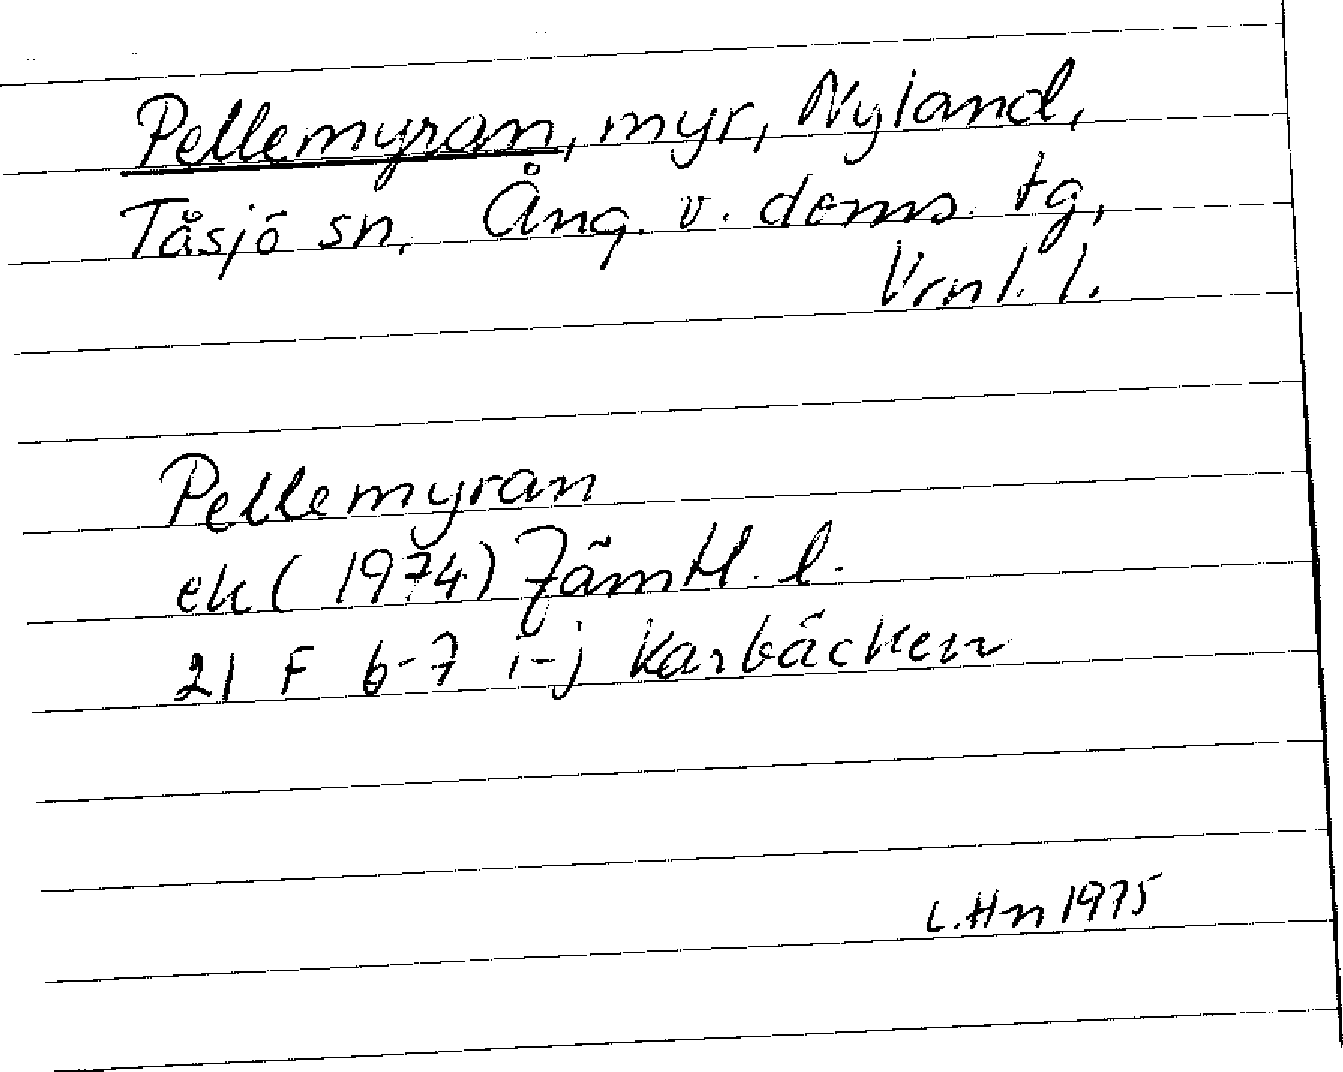 Pellemyran, myr, Nyland,
Tåsjö sn. Ång. v. doms. tg,
Vrnl. l.
Pellemyran
ek (1974) Jämtl. l.
21 F 6-7 i-j Karbäcken
L.Hn 1975